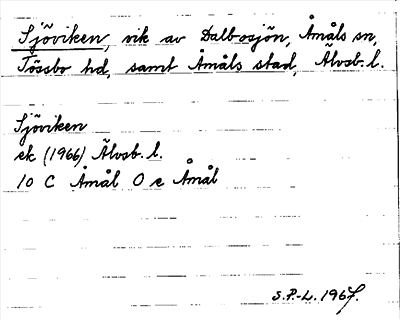 Sjöviken, vik av Dalbosjön, Åmåls sn,
Tössbo hd, samt Åmåls stad, Älvsb. l.
Sjöviken
ek (1966) Älvsb. l.
10 C Åmål O e Åmål
S.P.-L. 1967.